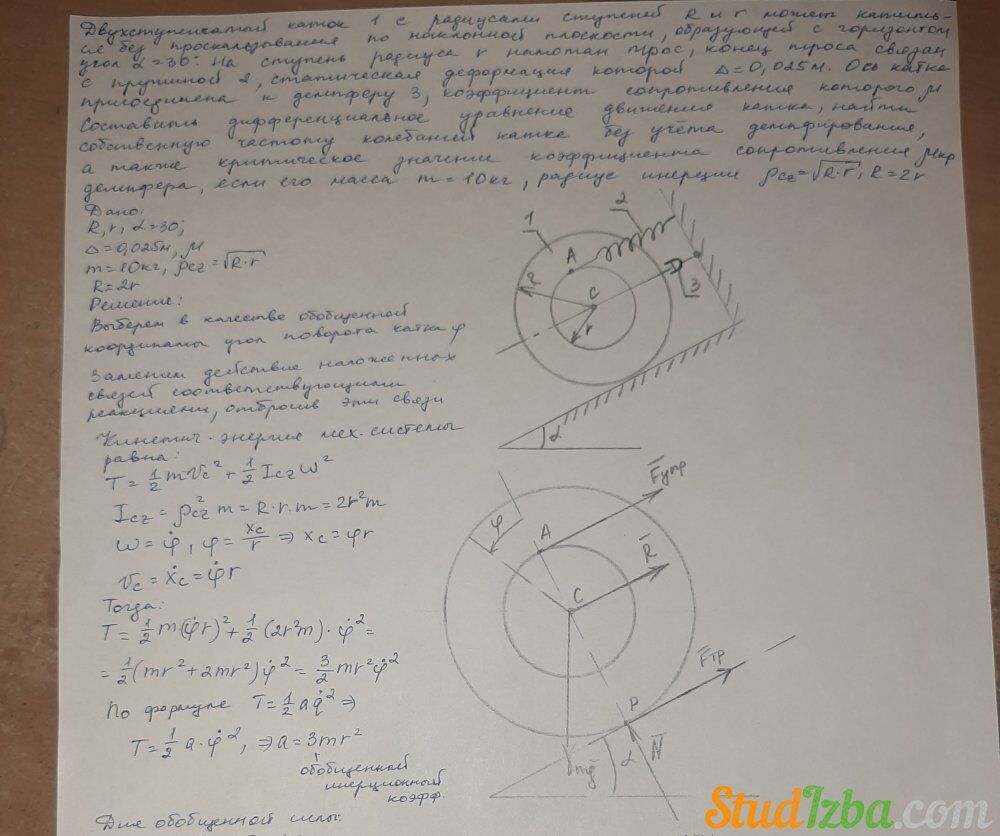 Двухступенчатый каток 1 с радиусами ступеней R и r может катить-
ся без проскальзывания по наклонной плоскости, образующей с горизонтом
угол α=30°. На ступень радиуса r намотан трос, конец троса связан
с пружиной 2, статическая деформация которой Δ=0,025м. Ось катка
присоединена к демпферу 3, коэффициент сопротивления которого μ
Составить дифференциальное уравнение движения катка, найти
собственную частоту колебаний катка без учёта демпфирования,
а также критическое значение коэффициента сопротивления μкр
демпфера, если его масса m=10кг, радиус инерции ρcz=√R·r, R=2r
Дано:
R, r, α=30;
Δ=0,025м, μ
m=10кг, ρcz=√R·r
R=2r
Решение:
Выберем в качестве обобщенной
координаты угол поворота катка φ
Заменим действие наложенных
связей соответствующими
реакциями, отбросив эти связи
Кинетич. энергия мех. системы
равна:
T = 1/2 mVc² + 1/2 Icz ω²
Icz = ρcz² m = R·r·m = 2r²m
ω = φ̇, φ = xc/r ⇒ xc = φr
Vc = ẋc = φ̇r
Тогда:
T = 1/2 m(φ̇r)² + 1/2 (2r²m)·φ̇² =
= 1/2 (mr² + 2mr²)φ̇² = 3/2 mr²φ̇²
По формуле T = 1/2 a q̇² ⇒
T = 1/2 a·φ̇², ⇒ a = 3mr²
обобщенный
инерционный
коэфф.
Для обобщенной силы:
1
2
A
R
C
r
3
α
F̄упр
φ
A
R̄
C
F̄тр
P
N̄
mḡ
α
StudIzba.com